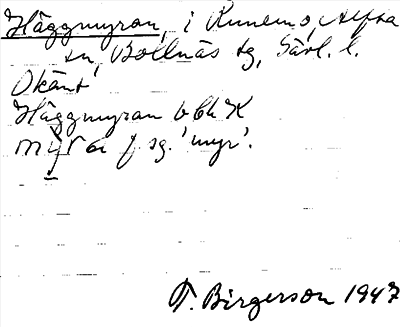 Häggmyran, i Runemo, Alfta
sn, Bollnäs tg, Gävl. l.
Okänt
Häggmyran
myra f sg. 'myr'.
T. Birgerson 1947